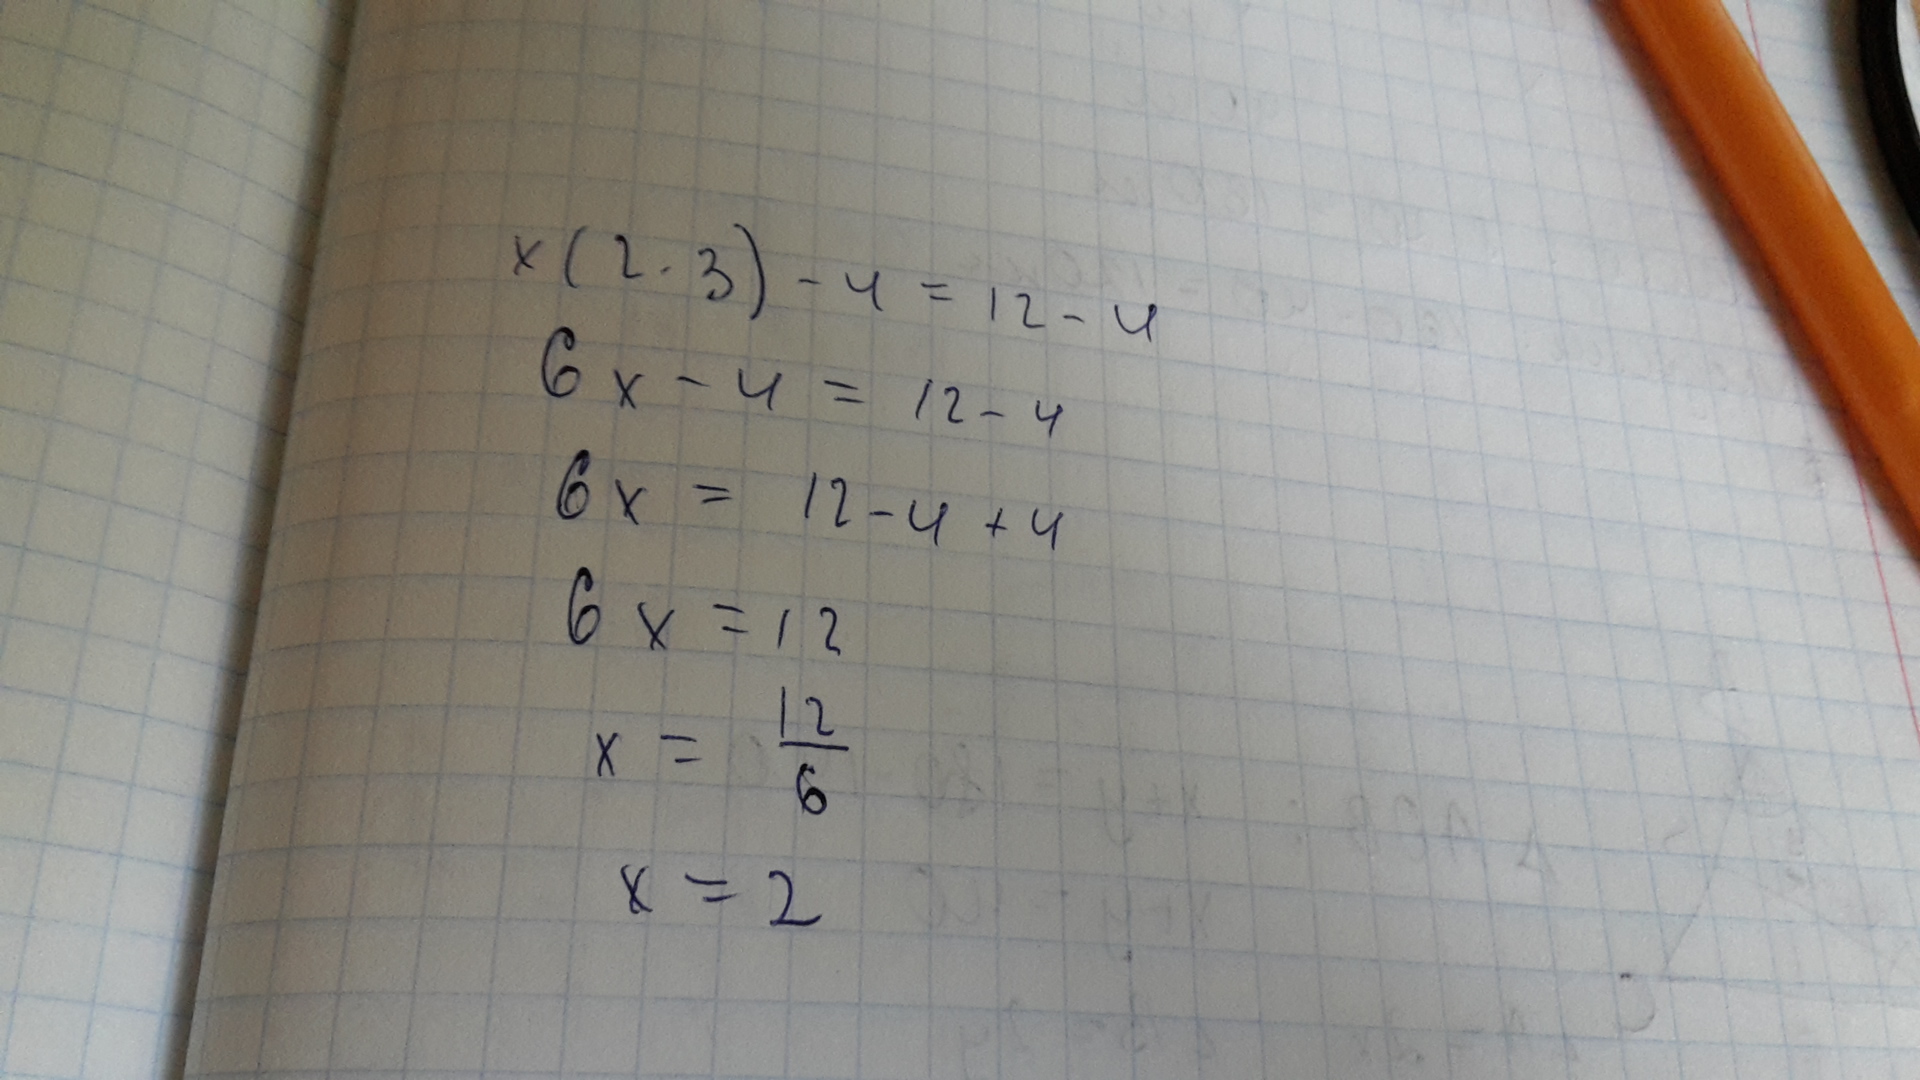 x(2·3)-4=12-4
6x-4=12-4
6x=12-4+4
6x=12
x=12/6
x=2